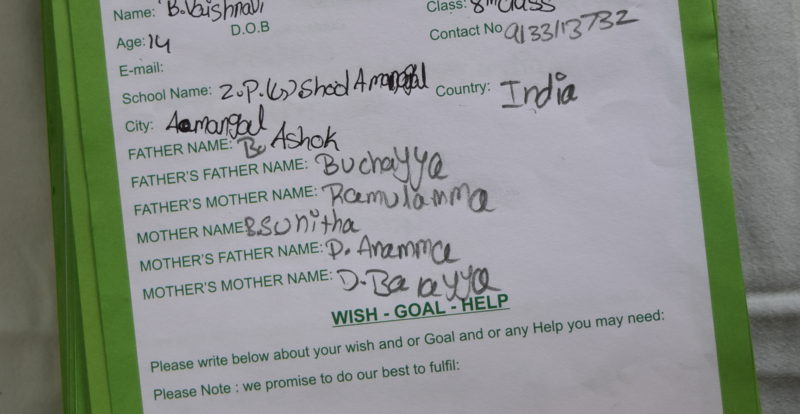 Name: B. Vaishnavi Class: 8th Class
Age: 14 D.O.B Contact No 9133113732
E-mail:
School Name: Z.P.(G) Shool Amangal Country: India
City: Aamangal
FATHER NAME: B. Ashok
FATHER'S FATHER NAME: Buchayya
FATHER'S MOTHER NAME: Ramulamma
MOTHER NAME B.Sunitha
MOTHER'S FATHER NAME: D. Anamma
MOTHER'S MOTHER NAME: D. Balayya
WISH - GOAL - HELP
Please write below about your wish and or Goal and or any Help you may need:
Please Note : we promise to do our best to fulfil: